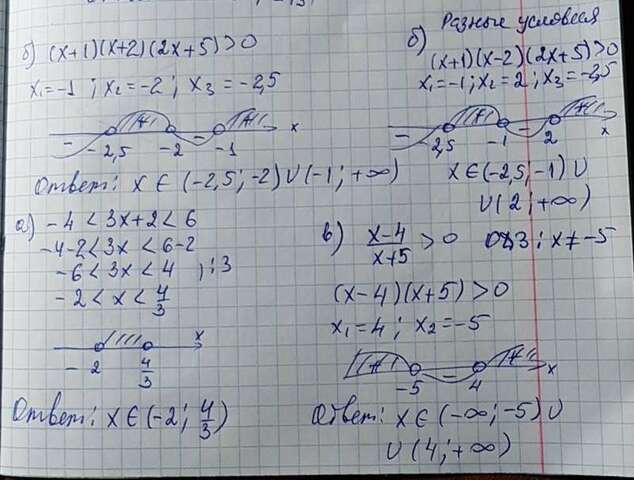 Разные условия
б) (x+1)(x+2)(2x+5)>0
x₁=-1; x₂=-2; x₃=-2,5
+ + x
- -
-2,5 -2 -1
Ответ: x∈(-2,5;-2)∪(-1;+∞)
б) (x+1)(x-2)(2x+5)>0
x₁=-1; x₂=2; x₃=-2,5
+ +
- - x
2,5 -1 2
x∈(-2,5;-1)∪
∪(2;+∞)
а) -4<3x+2<6
-4-2<3x<6-2
-6<3x<4 ; :3
-2<x<4/3
x
-2 4/3
Ответ: x∈(-2; 4/3)
в) x-4/x+5 >0 ОДЗ: x≠-5
(x-4)(x+5)>0
x₁=4; x₂=-5
+ - + x
-5 4
Ответ: x∈(-∞;-5)∪
∪(4;+∞)